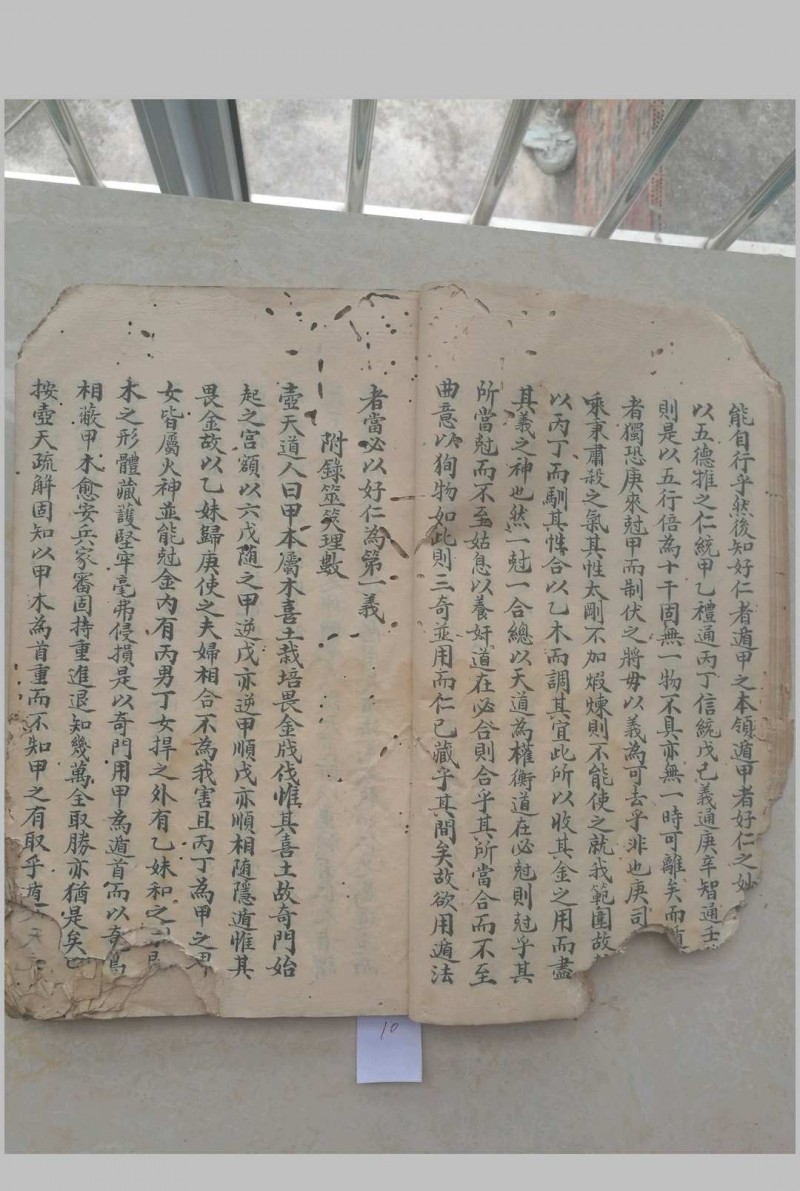 能自行乎然後知好仁者遁甲之本領遁甲者好仁之妙
以五德推之仁統甲乙禮通丙丁信統戊己義通庚辛智通壬
則是以五行倍為十干固無一物不具亦無一時可離矣而
者獨恐庚來尅甲而制伏之將毋以義為可去乎非也庚司
乘東肅殺之氣其性太剛不加煅煉則不能使之就我範圍故
以丙丁而馴其性合以乙木而調其宜此所以收其金之用而盡
其義之神也然一尅一合總以天道為權衡道在必尅則尅乎其
所當尅而不至姑息以養奸道在必合則合乎其所當合而不至
曲意以狥物如此則三奇並用而仁已藏乎其間矣故欲用遁法
者當必以好仁為第一義
附錄筮筴理數
壺天道人曰甲本屬木喜土栽培畏金戕伐惟其喜土故奇門始
起之宮額以六戊随之甲逆戊亦逆甲順戊亦順相随隱遁惟其
畏金故以乙妹歸庚使之夫婦相合不為我害且丙丁為甲之男
女皆屬火神並能尅金内有丙男丁女捍之外有乙妹和之
木之形體藏護堅牢毫弗侵損是以奇門用甲為遁首而以奇為
相蔽甲木愈安兵家審固持重進退知幾萬全取勝亦猶是矣
按壺天疏解固知以甲木為首重而不知甲之有取乎遁
10